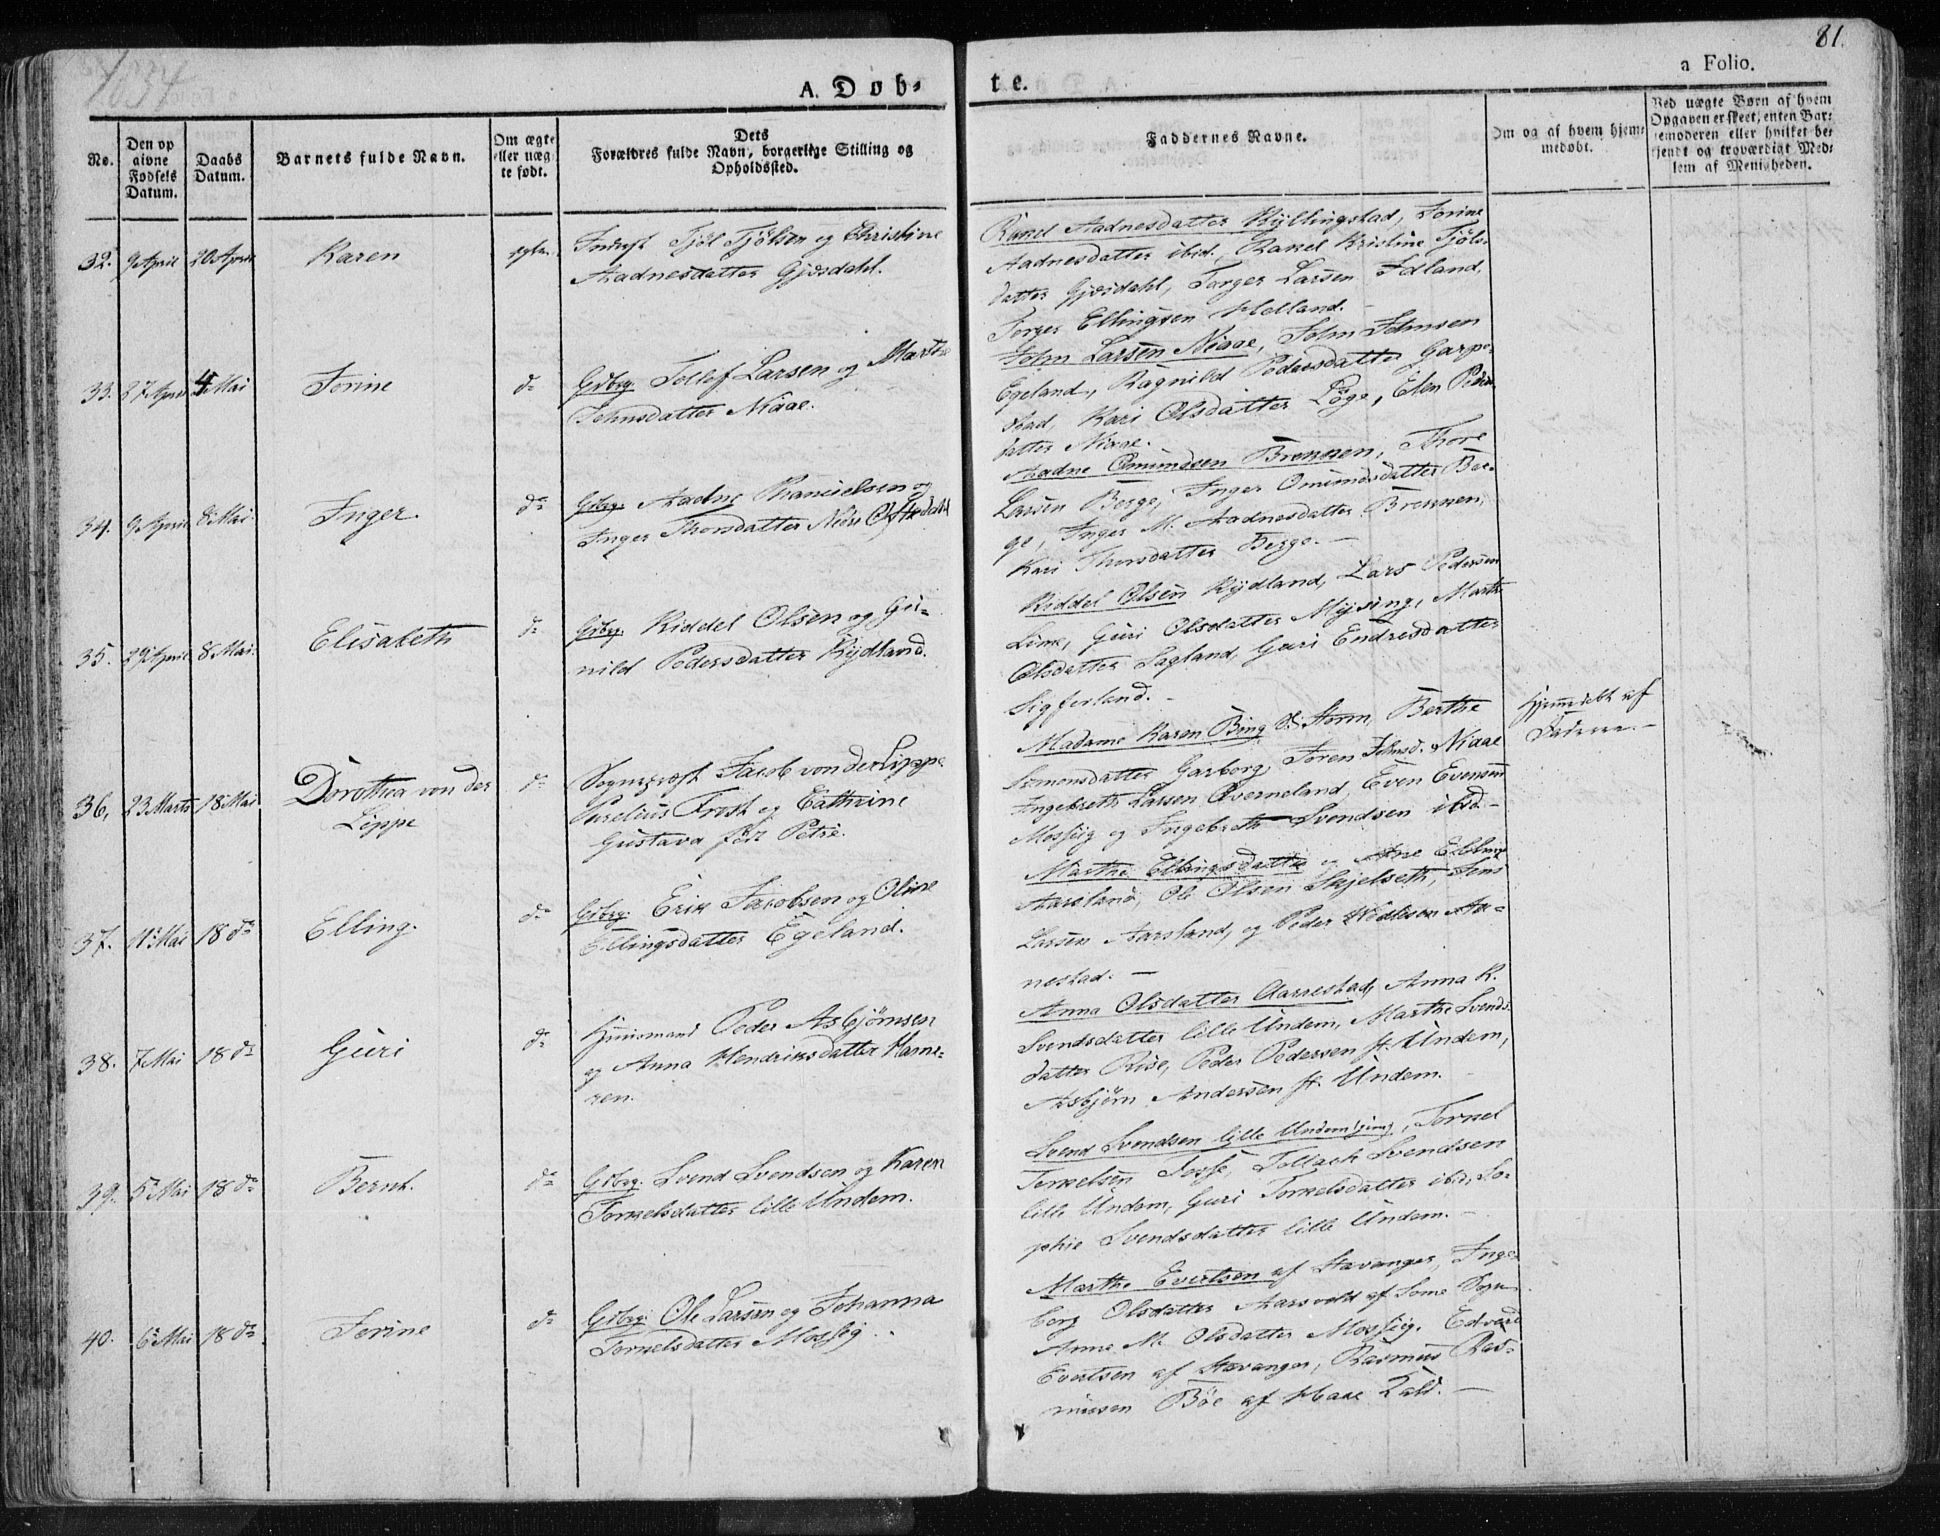 1834
A. Døb-
te.
81.
a Folio.
No.
Den op
givne
Fødsels
Datum.
Daabs
Datum.
Barnets fulde Navn.
Om ægte
eller uæg
te født.
Dets
Forældres fulde Navn, borgerlige Stilling og
Opholdssted.
Faddernes Navne.
Om og af hvem hjem-
medøbt.
Ved uægte Børn af hvem
Opgaven er skeet, enten Bar-
nemoderen eller hvilket be-
kjendt og troværdigt Med-
lem af Menigheden.
32. 9 April 20 April Karen ægte. Indrest Tjöl Tjölsen og Christine
Aadnesdatter Gjæsdahl.
Ranel Aadnesdatter Kyllingstad, Torine
Aadnesdatter ibid., Ranel Kristine Tjöls-
datter Gjæsdahl, Torger Larsen Idland,
Torger Ellingsen Helland.
33. 27 April 4 Mai Torine do Gdbrg. Tollef Larsen og Marthe
Johnsdatter Niaae.
John Larsen Niaae, John Johnsen
Egeland, Ragnild Pedersdatter Garpe-
stad, Kari Olsdatter Löge, Elen Peders
datter Niaae.
34. 9 April 8 Mai Inger. do Gdbrg. Aadne Thanielsen og
Inger Thorsdatter Nedre Oftedahl
Aadne Omundsen Brekken, Thore
Larsen Berge, Inger Omundsdatter Ber-
ge, Inger M. Aadnesdatter Brekken,
Kari Thorsdatter Berge. —
35. 29 April 8 Mai. Elisabeth do Gdbrg. Kiddel Olsen og Gu-
nild Pedersdatter Kydland.
Kiddel Olsen Kydland, Lars Pedersen
Lime, Guri Olsdatter Mysing, Marthe
Olsdatter Sagland, Guri Endresdatter
Sigferland. —
36. 23 Marts 18 Mai Dorothea von der
Lippe
do Sognepræst Jacob von der Lippe
Parelius Frost og Cathrine
Gustava för Petré.
Madame Karen Bing Berthe
Simonsdatter Garborg, Soren Johnsd. Niaae
Ingebreth Larsen Qverneland, Even Evensen
Mossig og Ingebreth Svendsen ibid. —
Hjemmedøbt af
Faderen. —
37. 11 Mai 18 do Elling. do Gdbrg. Erik Jacobsen og Oline
Ellingsdatter Egeland.
Marthe Ellingsdatter og Ane Ellings
Aarsland, Ole Olsen Skjelseth, Jens
Larsen Aarsland, og Peder Aa-
nestad. —
38. 7 Mai 18 do Guri do Huusmand Peder Asbjörnsen
og Anna Hendriksdatter Hamr-
ren.
Anna Olsdatter Aarrestad, Anna K.
Svendsdatter lille Undem, Marthe Svends
datter Rise, Peder Pedersen st. Undem,
Asbjörn Andersen st. Undem.
39. 5 Mai 18 do Bernt. do Gdbrg. Svend Svendsen og Karen
Torkelsdatter lille Undem.
Svend Svendsen lille Undem, Torkel
Torkelsen Tosse, Tollach Svendsen
lille Undem, Guri Torkelsdatter ibid, So-
phie Svendsdatter lille Undem. —
40. 6 Mai 18 do Torine do Gdbrg. Ole Larsen og Johanna
Torkelsdatter Mossig.
Marthe Evertsen af Stavanger, Inge-
borg Olsdatter Aarsvold af Some Sogn
Anne M. Olsdatter Mossig. Edvard
Evertsen af Stavanger, Rasmus Ras-
mussen Böe af Haae Kald. —